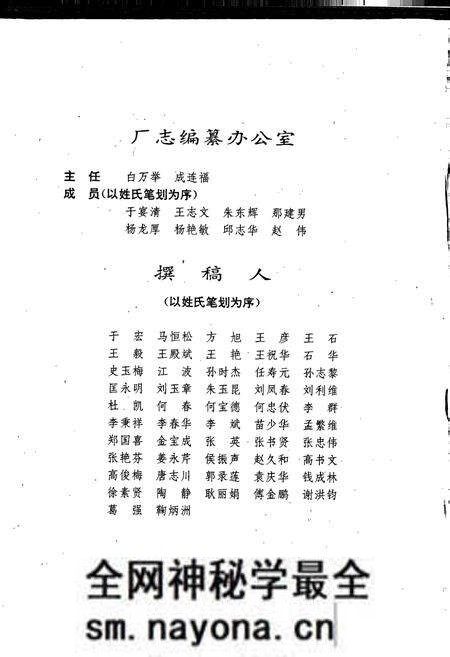 厂志编纂办公室
主 任 白万举 成连福
成 员(以姓氏笔划为序)
于宴清 王志文 朱东辉 那建男
杨龙厚 杨艳敏 邱志华 赵 伟
撰 稿 人
(以姓氏笔划为序)
于 宏 马恒松 方 旭 王 彦 王 石
王 毅 王殿斌 王 艳 王祝华 石 华
史玉梅 江 波 孙时杰 任寿元 孙志黎
匡永明 刘玉章 朱玉昆 刘凤春 刘利维
杜 凯 何 春 何宝德 何忠伏 李 群
李秉祥 李春华 李 斌 苗少华 孟繁维
郑国喜 金宝成 张 英 张书贤 张忠伟
张艳芬 姜永芹 侯振声 赵久和 高书文
高俊梅 唐志川 郭录莲 袁庆华 钱成林
徐素贤 陶 静 耿丽娟 傅金鹏 谢洪钧
葛 强 鞠炳洲
全网神秘学最全
sm.nayona.cn